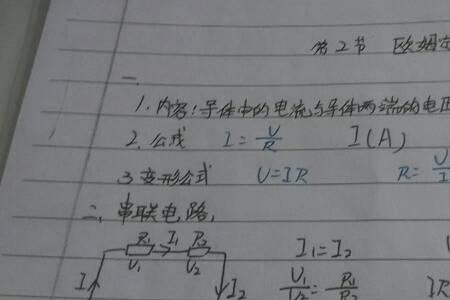 第2节 欧姆定
一、
1. 内容:导体中的电流与导体两端的电压
2. 公式 I=U/R I(A)
3 变形公式 U=IR R=U/I
二、串联电路,
R₁ I₁ R₂ I₁=I₂
I U₁ U₂ I₂ U₁/U₂=R₁/R₂